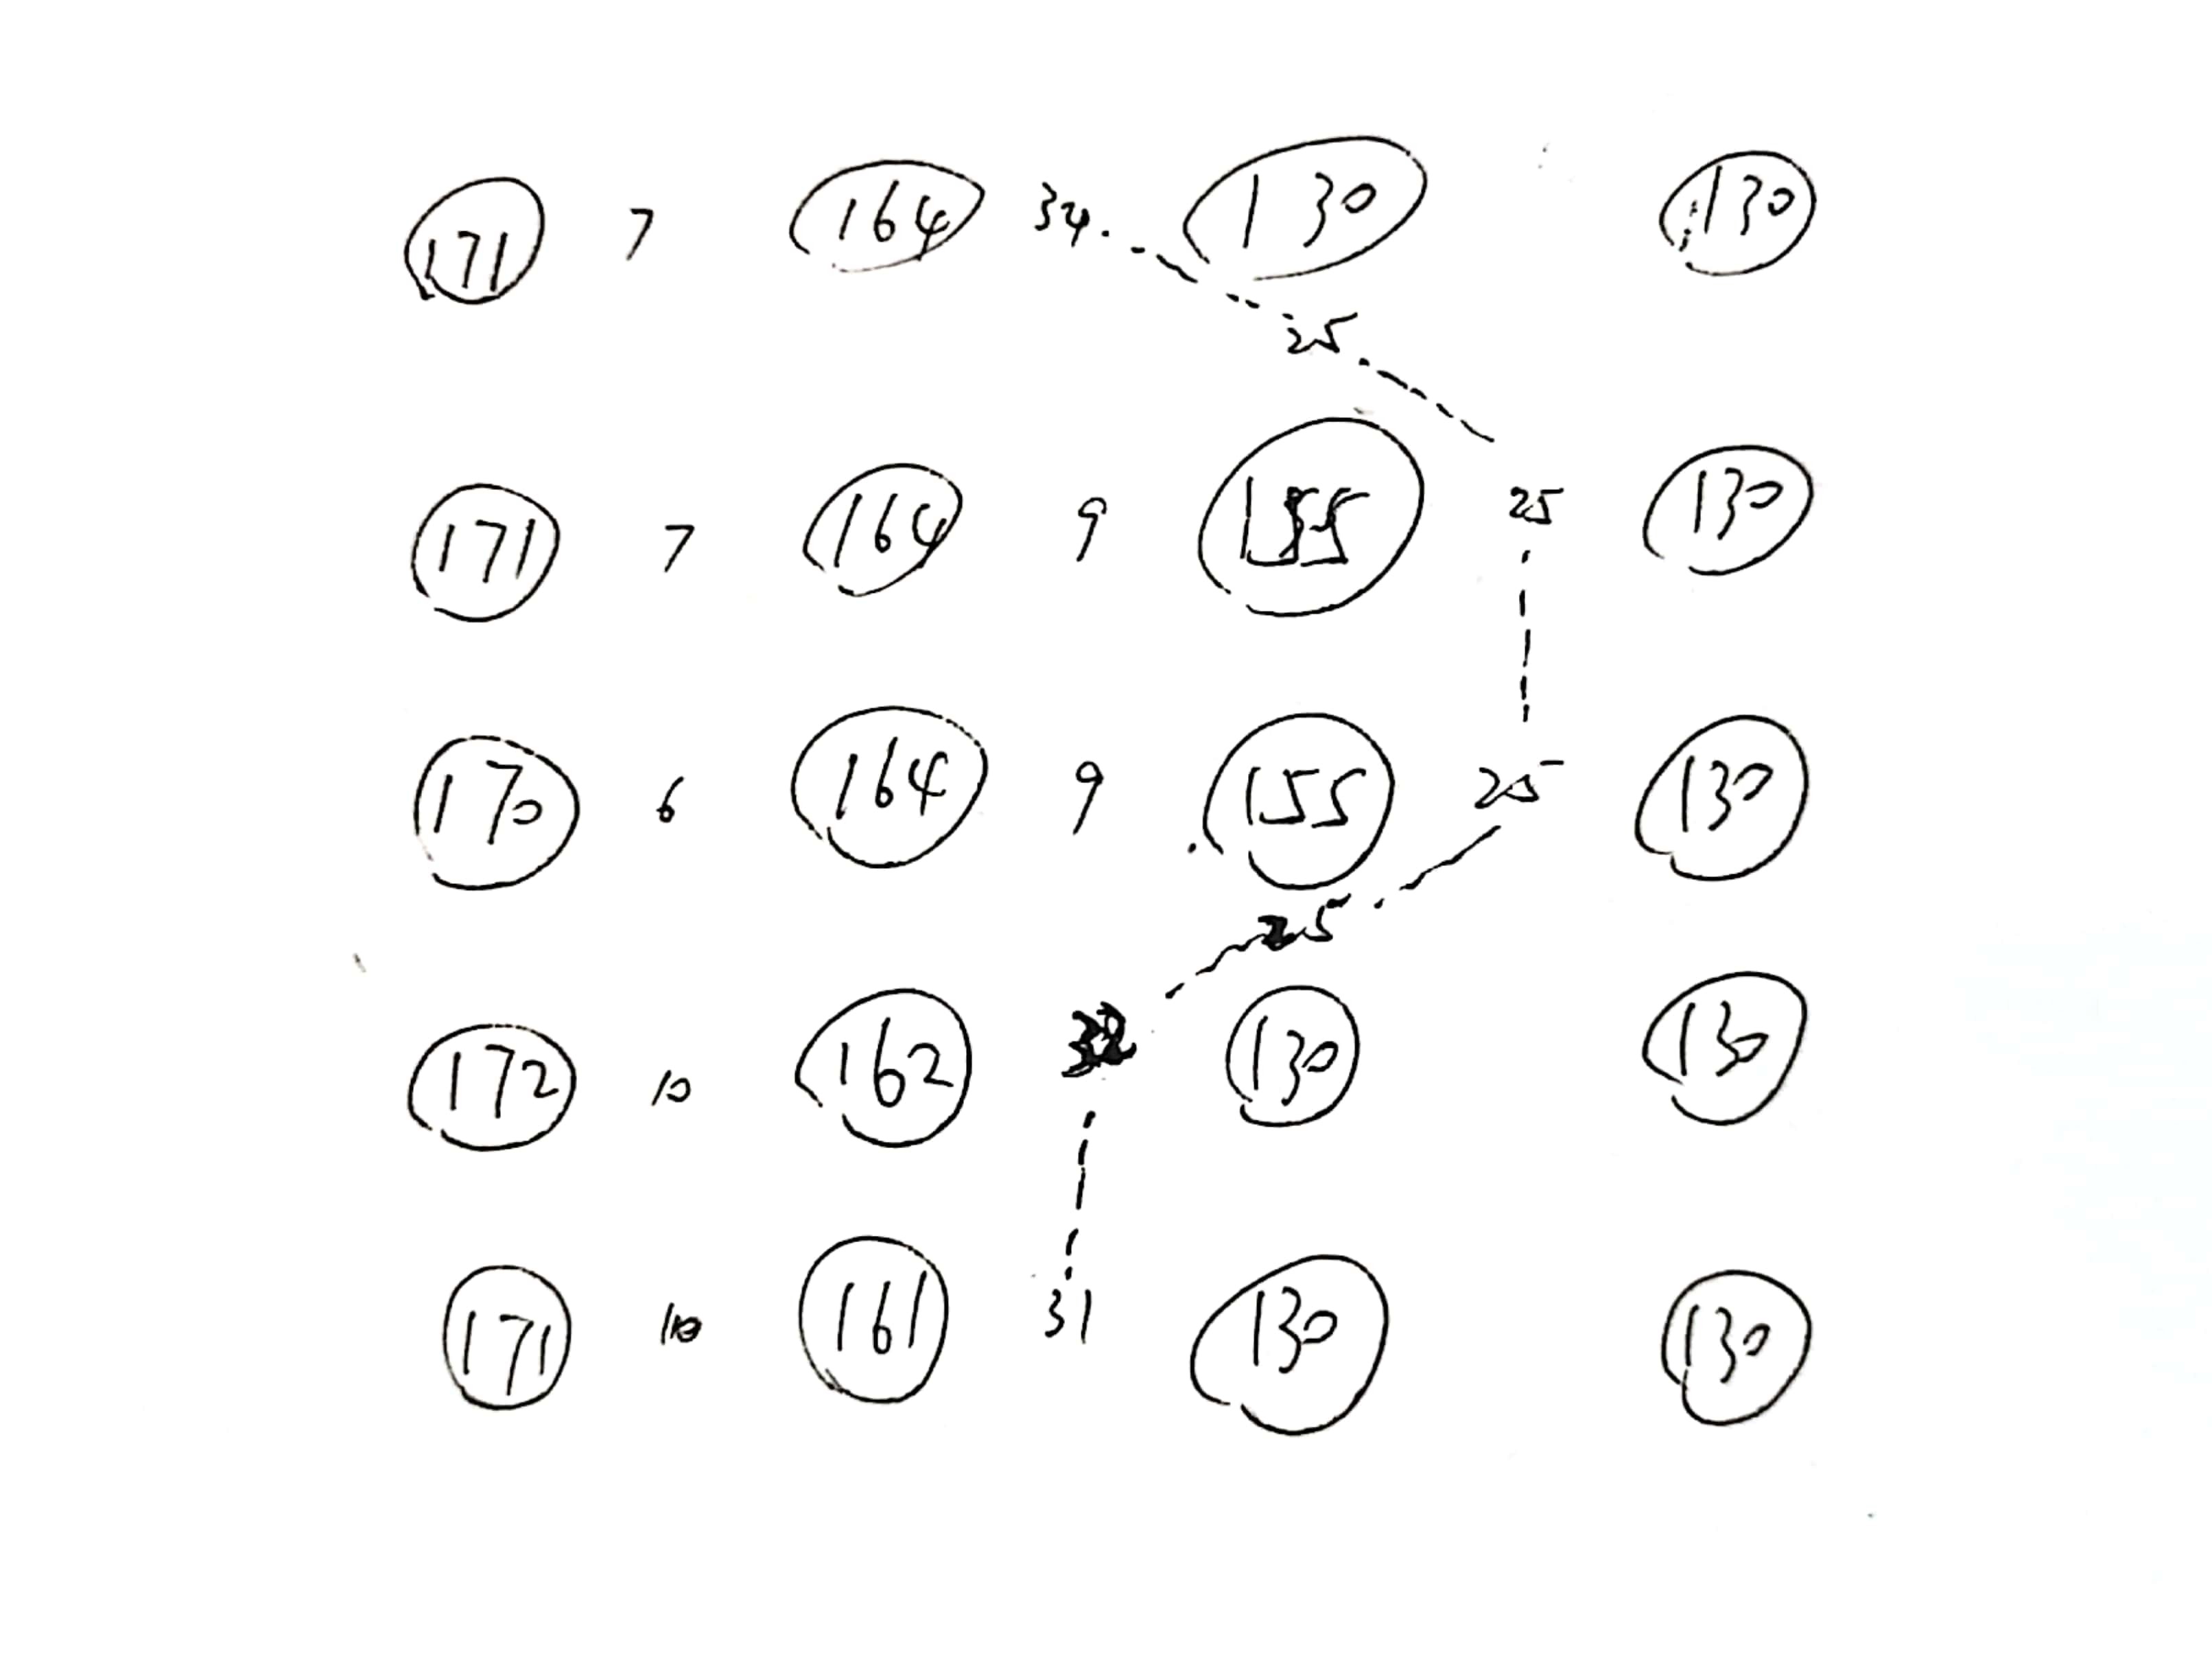 171 7 164 34 130 130
25
171 7 164 9 155 25 130
170 6 164 9 155 25 130
25
172 10 162 32 130 130
171 10 161 31 130 130